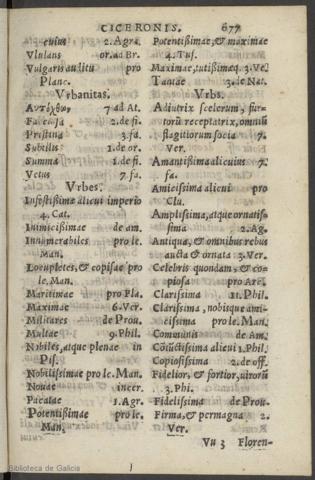 CICERONIS. 677
cuius 2. Agra.
Vlulans or. ad Br.
Vulgaris auditu pro
Planc.
Vrbanitas.
7 ad At.
2. de fi.
Pristina 3. fa.
Subtilis 1. de or.
Summa 1. de fi.
Vetus 7. fa.
Vrbes.
Infestißimæ alicui imperio
4. Cat.
Inimicißimæ de am.
Innumerabiles pro le.
Man.
Locupletes, & copiosæ pro
le. Man.
Maritimæ pro Pla.
Maximæ 6. Ver.
Militares de Prou.
Multæ 9. Phil.
Nobiles, atque plenæ in
Pis.
Nobilissimæ pro le. Man.
Nouæ incer.
Pacatæ 1. Agr.
Potentißimæ pro le.
Man.
Potentißimæ, & maximæ
4. Tus.
Maximæ, tutißimæq. 3. Ve.
Tantæ 3. de Nat.
Vrbs.
Adiutrix scelerum, fur-
torū receptatrix, omniū
flagitiorum socia 7.
Ver.
Amantißima alicuius 7.
fa.
Amicißima alicui pro
Clu.
Amplißima, atque ornatis-
sima 2. Ag.
Antiqua, & omnibus rebus
aucta & ornata 3. Ver.
Celebris quondam, & co-
piosa pro Arc.
Clarißima 11. Phil.
Clarißima, nobisque ami-
cißima pro le. Man.
Communis de Am.
alicui 1. Phil.
Copiosißima 2. de off.
Fidelior, & fortior, uirorū
3. Phi.
Fidelißima de Prou.
Firma, & permagna 2.
Ver.
Vu 3 Floren-
Biblioteca de Galicia